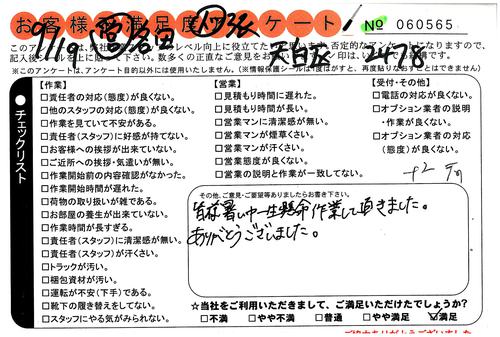 お客様満足度アンケート
No 060565
9/19
天白区 2478
記入後
※このアンケートは、アンケート目的以外には使用いたしません。(※情報保護シールは1度はがすと、再度貼りなおすことはできません)
チェックリスト
【作業】
□責任者の対応(態度)が良くない。
□他のスタッフの対応(態度)が良くない。
□作業を見ていて不安がある。
□責任者(スタッフ)に好感が持てない。
□お客様への挨拶が出来ていない。
□ご近所への挨拶・気遣いが無い。
□作業開始前の内容確認がなかった。
□作業開始時間が遅れた。
□荷物の取り扱いが雑である。
□お部屋の養生が出来ていない。
□作業時間が長すぎる。
□責任者(スタッフ)に清潔感が無い。
□責任者(スタッフ)が汗くさい。
□トラックが汚い。
□梱包資材が汚い。
□運転が不安(下手)である。
□靴下の履き替えをしてない。
□スタッフにやる気がみられない。
【営業】
□見積もり時間に遅れた。
□見積もり時間が長い。
□営業マンに清潔感が無い。
□営業マンが煙草くさい。
□営業マンが汗くさい。
□営業態度が良くない。
□営業の説明と作業が一致してない。
【受付・その他】
□電話の応対が良くない。
□オプション業者の説明
・作業が良くない。
□オプション業者の対応
(態度)が良くない。
その他、ご意見・ご要望等ありましたらお書き下さい。
皆様暑い中一生懸命作業して頂きました。
ありがとうございました。
☆当社をご利用いただきまして、ご満足いただけたでしょうか?
□不満 □やや不満 □普通 □やや満足 ☑満足